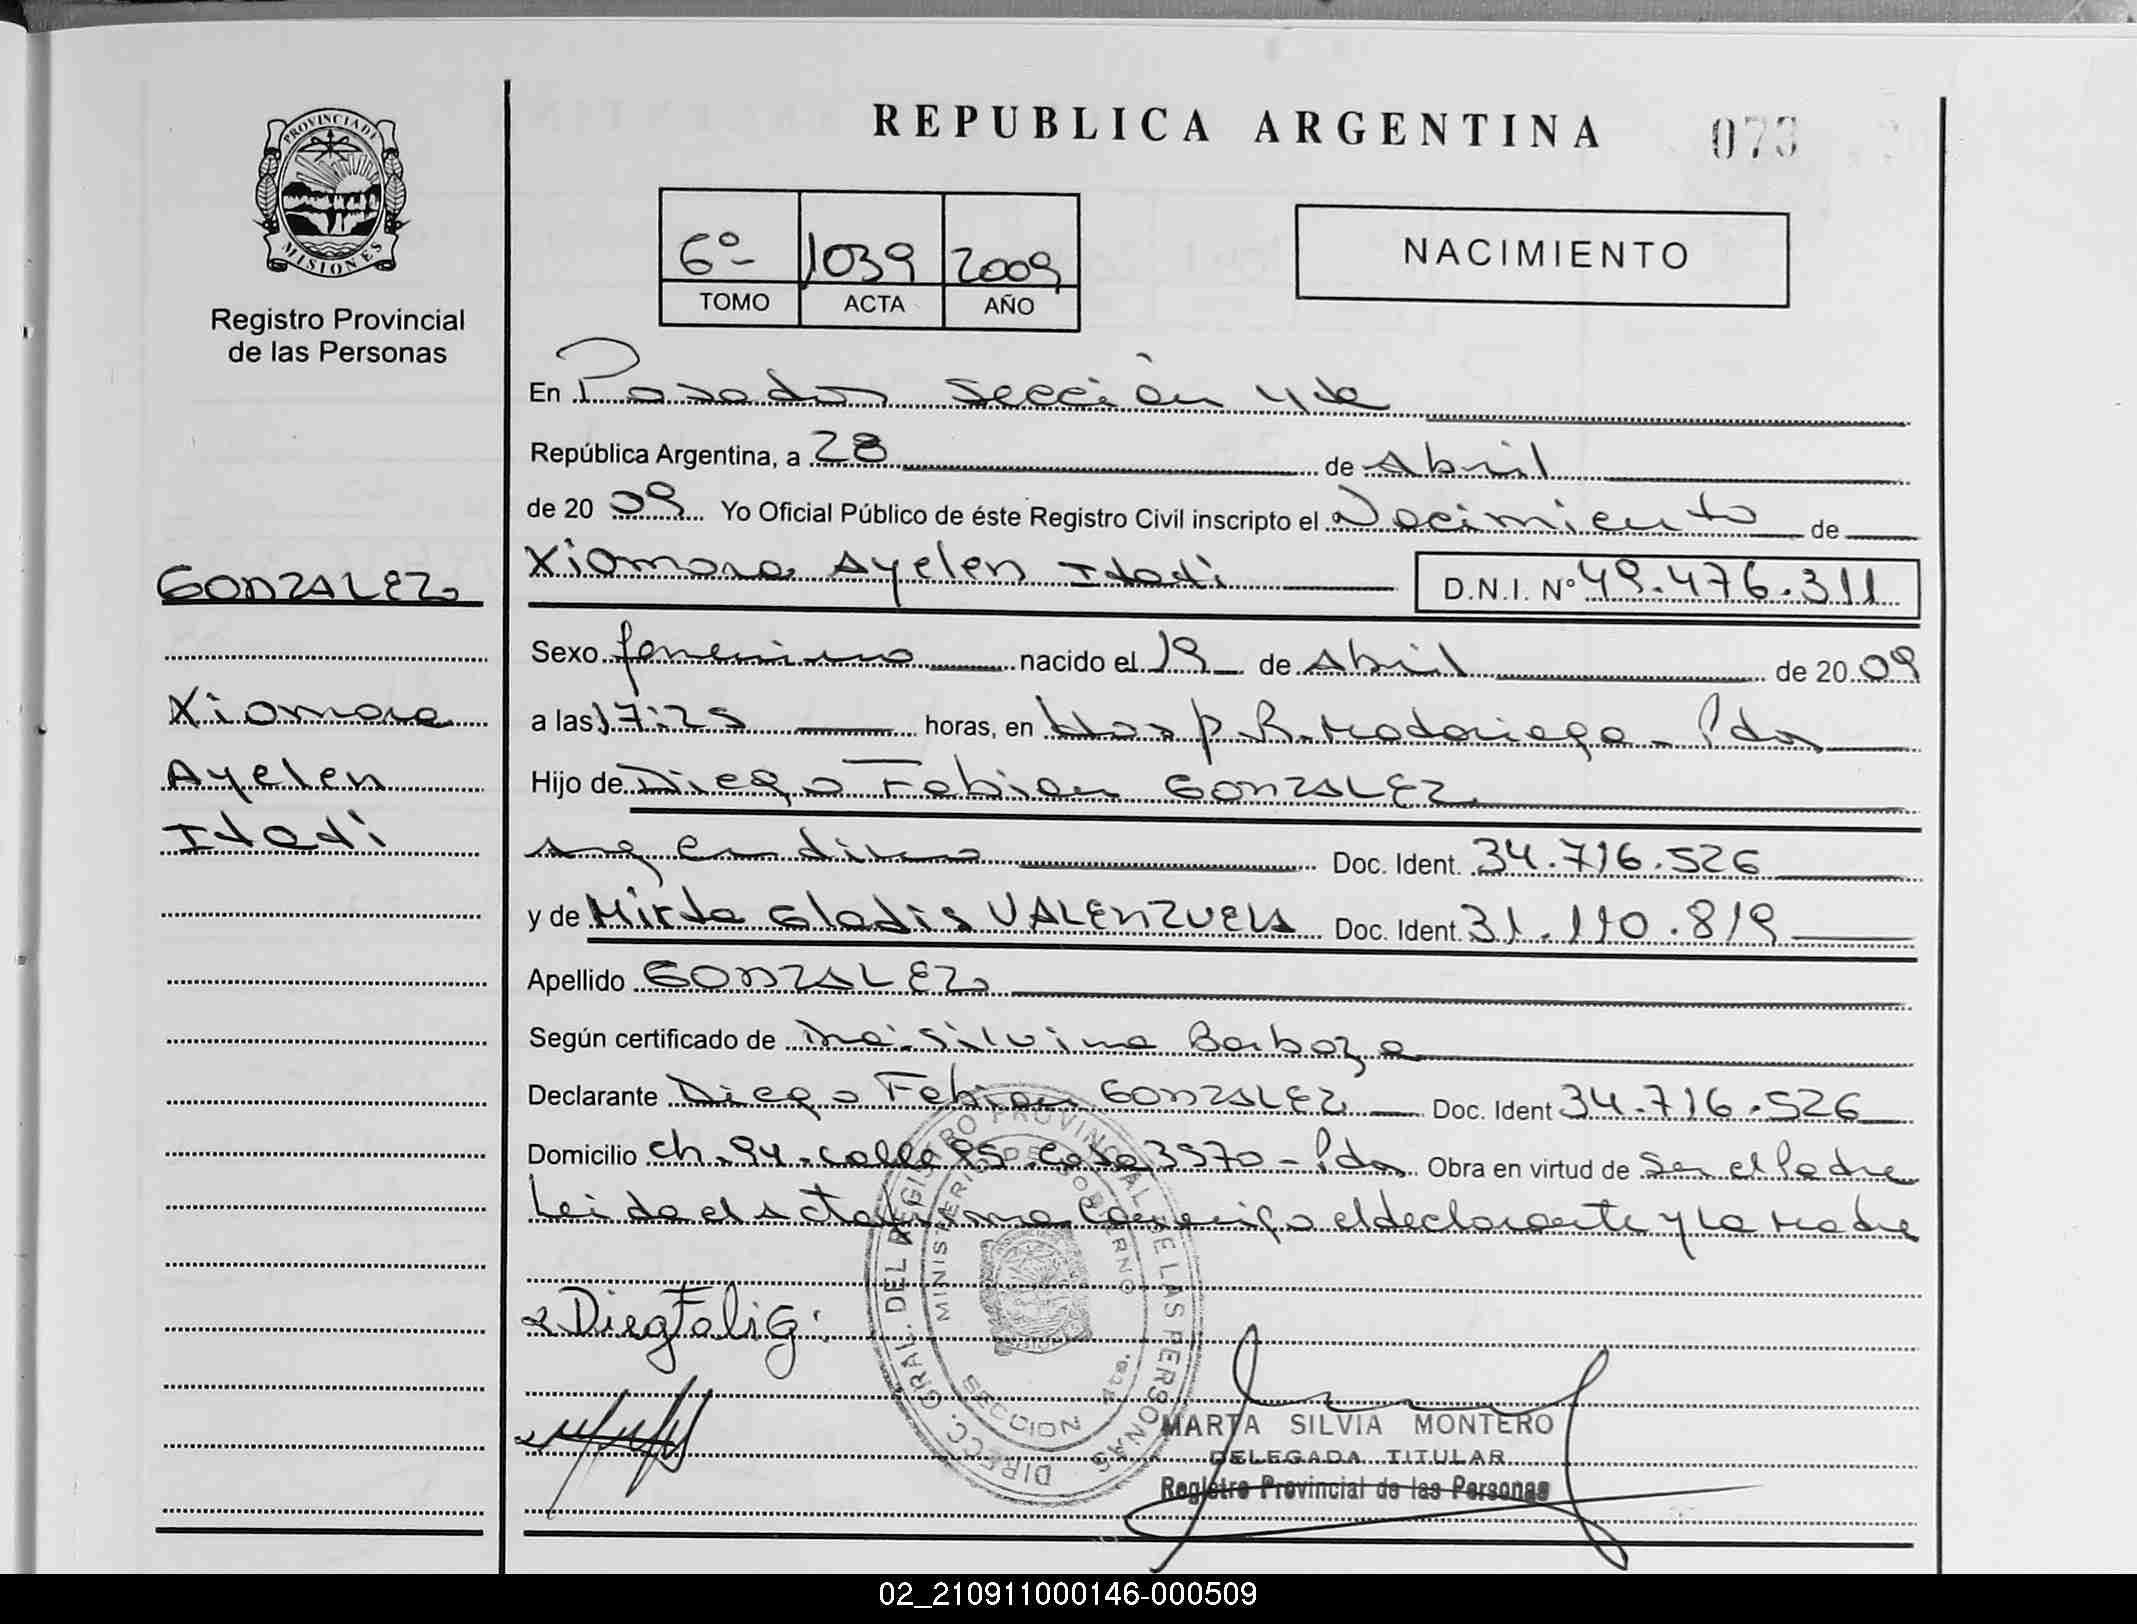 REPUBLICA ARGENTINA
073
PROVINCIA DE
MISIONES
Registro Provincial
de las Personas
6º 1039 2009
TOMO ACTA AÑO
NACIMIENTO
En Posadas Sección 4ta
República Argentina, a 28 de Abril
de 2009 Yo Oficial Público de éste Registro Civil inscripto el Nacimiento de
Xiomara Ayelen Itatí D.N.I. Nº 49.476.311
GONZALEZ
Xiomara
Ayelen
Itatí
Sexo femenino nacido el 19 de Abril de 2009
a las 17:25 horas, en Hosp. R. Madariaga - Pdas
Hijo de Diego Fabian GONZALEZ
argentino Doc. Ident. 34.716.526
y de Mirta Gladis VALENZUELA Doc. Ident. 31.110.819
Apellido GONZALEZ
Según certificado de Silvina Barboza
Declarante Diego Fabian GONZALEZ Doc. Ident 34.716.526
Domicilio ch. 94. calle 95 Casa 3970 - Pdas Obra en virtud de Ser el Padre
Leida el acta firma conmigo el declarante y la Madre
DIRECC. GRAL. DEL REGISTRO PROVINCIAL DE LAS PERSONAS
MINISTERIO DE GOBIERNO
SECCION 4ta.
MARTA SILVIA MONTERO
DELEGADA TITULAR
Registro Provincial de las Personas
02_210911000146-000509